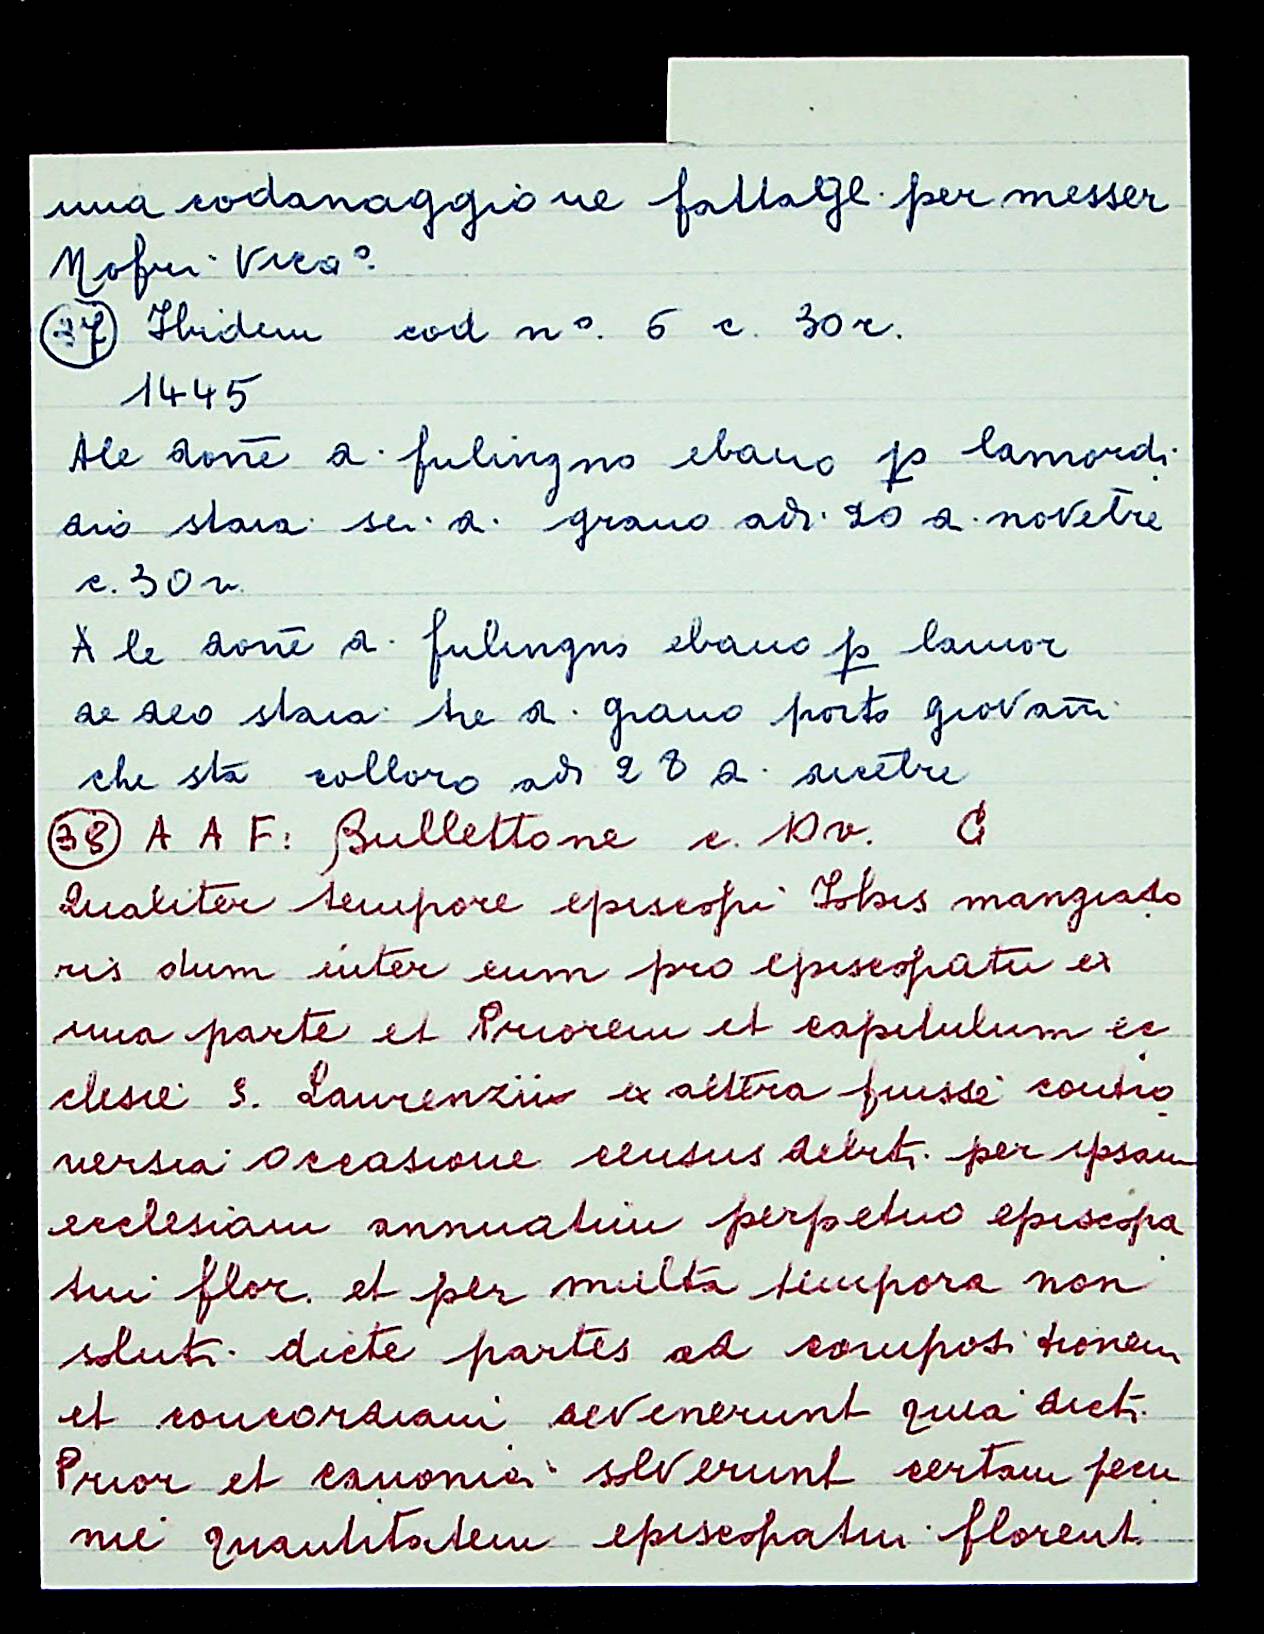 una codanaggione fattagl. per messer
Nofri Vica°.
37 Ibidem cod n°. 6 c. 30r.
1445
Ale donē d. fulingno ebano p lamordi
dio staia sei d. grano adi 20 d. novētre
c. 30v
A le donē d. fulingno ebano p lamor
de deo staia tre d. grano porto giovañi
che stā colloro adi 28 d. dicētre
38 A A F: Bullettone c. 10v.
Qualiter tempore episcopi Iohis mangiado
ris dum inter eum pro episcopatu ex
una parte et Priorem et capitulum ec
clesie S. Laurenzii ex altera fuisse contro
versia occasione census debiti per ipsam
ecclesiam annuatim perpetuo episcopa
tui flor. et per multa tempora non
soluti dicte partes ad compositionem
et concordiam devenerunt quia dicti
Prior et canonici solverunt certam pecu
nie quantitatem episcopatui florent.